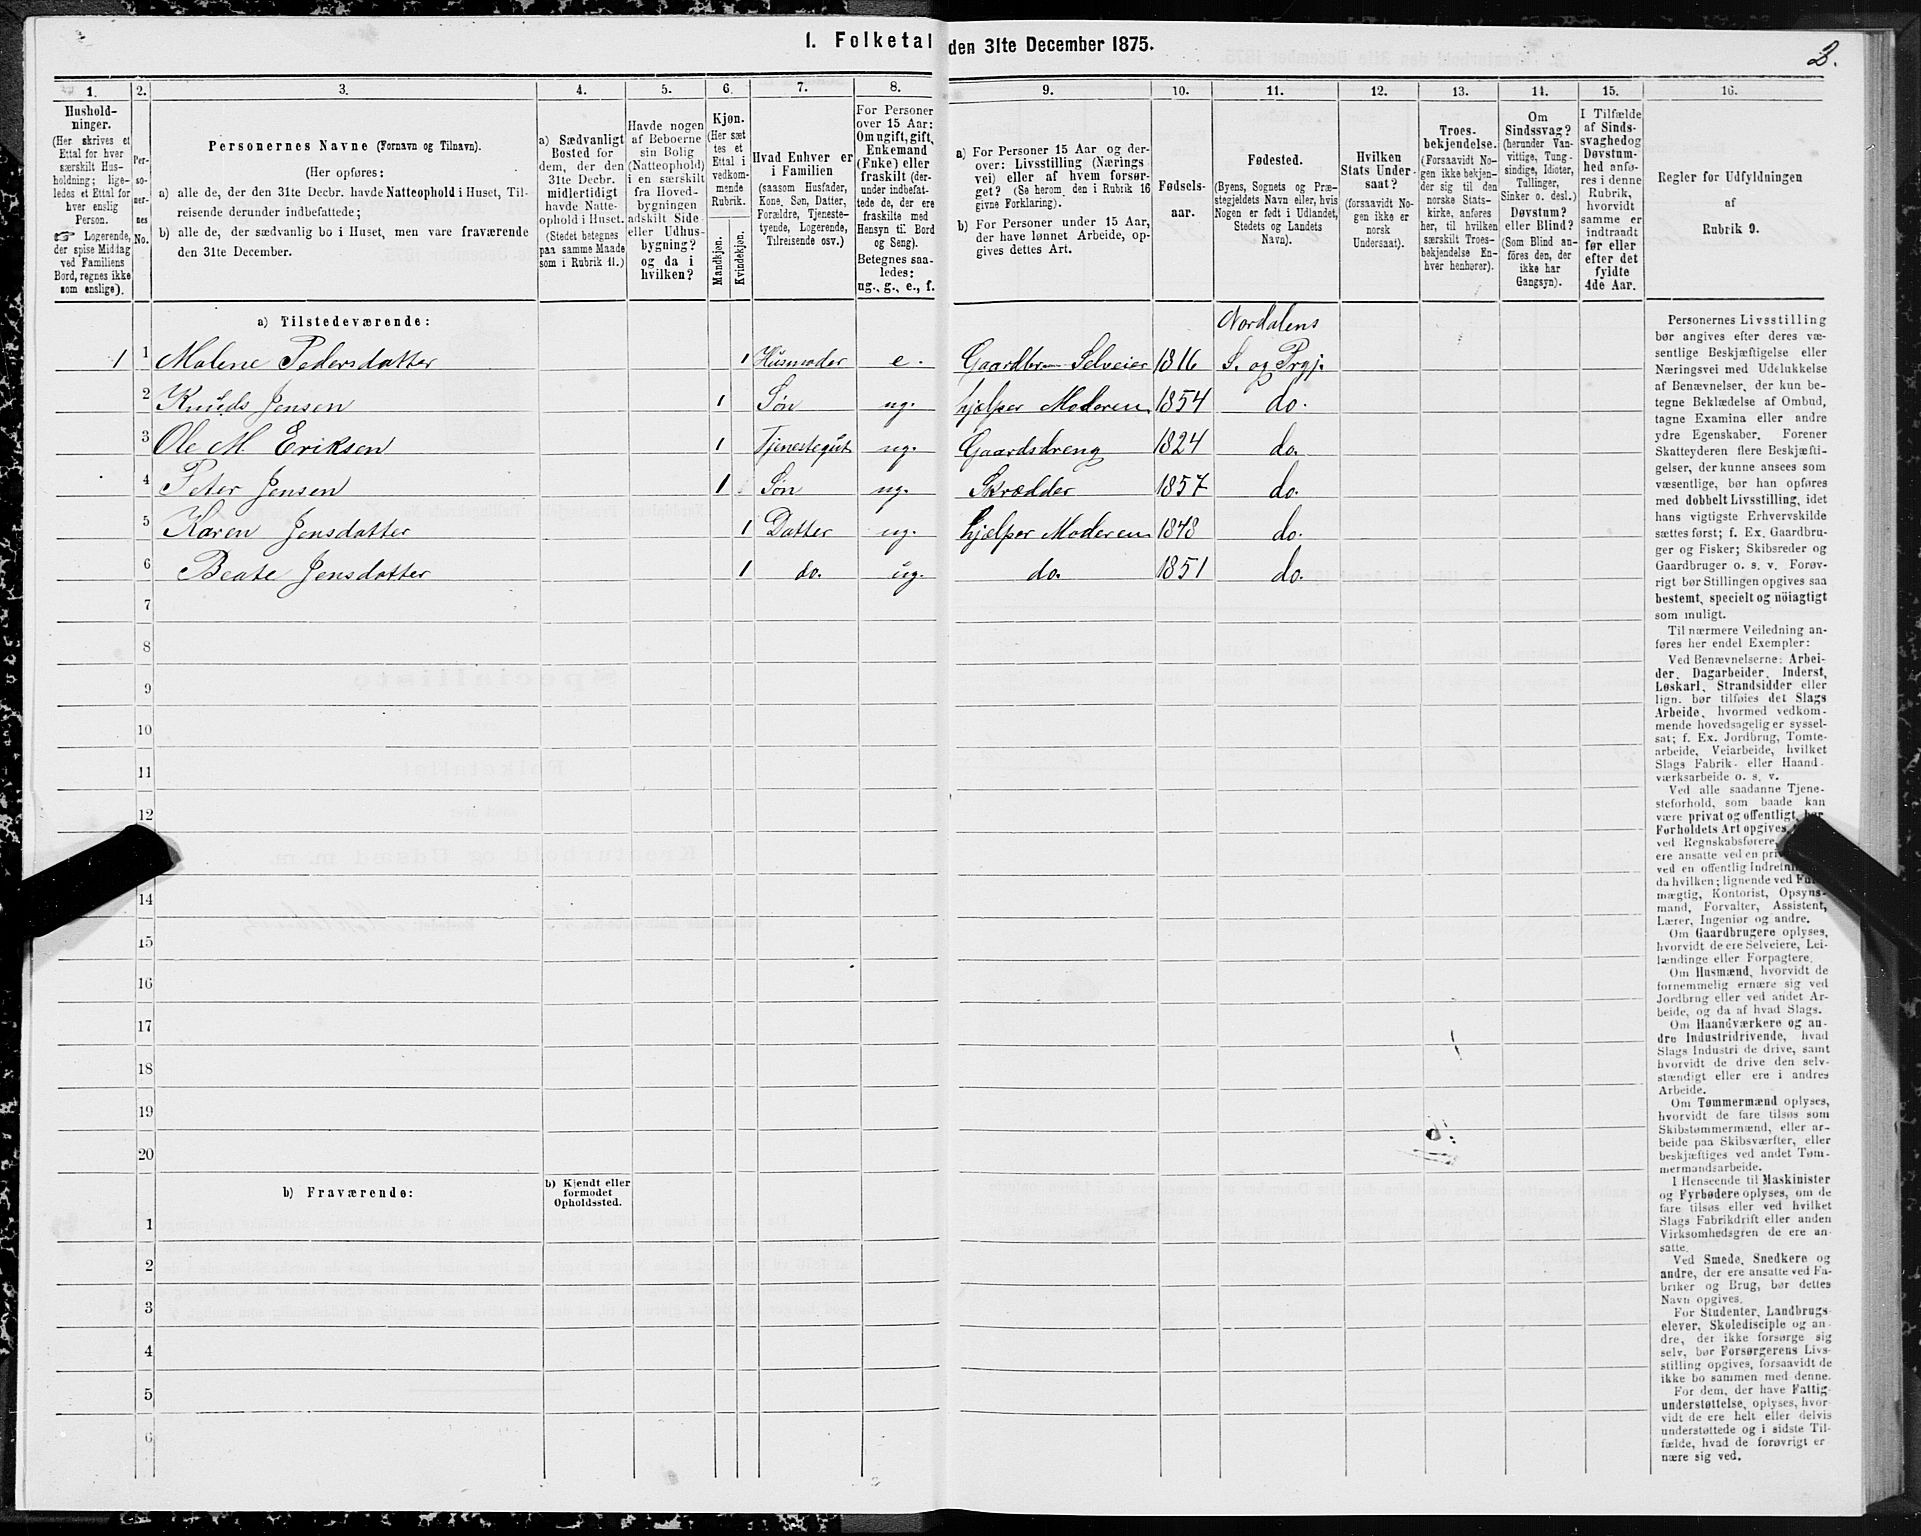 1. Folketal den 31te December 1875.
2.
1. 2. 3. 4. 5. 6. 7. 8. 9. 10. 11. 12. 13. 14. 15. 16.
Hushold-
ninger.
(Her skrives et
Ettal for hver
særskilt Hus-
holdning; lige-
ledes et Ettal for
hver enslig
Person.
☞ Logerende,
der spise Middag
ved Familiens
Bord, regnes ikke
som enslige).
Per-
so-
ner-
nes
No.
Personernes Navne (Fornavn og Tilnavn).
(Her opføres:
a) alle de, der den 31te Decbr. havde Natteophold i Huset, Til-
reisende derunder indbefattede;
b) alle de, der sædvanlig bo i Huset, men vare fraværende
den 31te December.
a) Sædvanligt
Bosted for
dem, der den
31te Decbr.
midlertidigt
havde Natte-
ophold i Huset.
(Stedet betegnes
paa samme Maade
som i Rubrik 11.)
Havde nogen
af Beboerne
sin Bolig
(Natteophold)
i en særskilt
fra Hoved-
bygningen
adskilt Side-
eller Udhus-
bygning?
og da i
hvilken?
Kjøn.
(Her sæt
tes et
Ettal i
vedkom-
mende
Rubrik.
Mandkjøn.
Kvindekjøn.
Hvad Enhver er
i Familien
(saasom Husfader,
Kone, Søn, Datter,
Forældre, Tjeneste-
tyende, Logerende,
Tilreisende osv.)
For Personer
over 15 Aar:
Om ugift, gift,
Enkemand
(Enke) eller
fraskilt (der-
under indbefat-
tede de, der ere
fraskilte med
Hensyn til Bord
og Seng).
Betegnes saa-
ledes:
ug., g., e., f.
a) For Personer 15 Aar og der-
over: Livsstilling (Nærings
vei) eller af hvem forsør-
get? (Se herom den i Rubrik 16
givne Forklaring).
b) For Personer under 15 Aar,
der have lønnet Arbeide, op-
gives dettes Art.
Fødsels-
aar.
Fødested.
(Byens, Sognets og Præ-
stegjeldets Navn eller, hvis
Nogen er født i Udlandet,
Stedets og Landets
Navn).
Hvilken
Stats Under-
saat?
(forsaavidt No-
gen ikke er
norsk
Undersaat).
Troes-
bekjendelse.
(Forsaavidt No-
gen ikke bekjen-
der sig til den
norske Stats-
kirke, anføres
her, til hvilken
særskilt Troes-
bekjendelse En-
hver henhører).
Om
Sindssvag?
(herunder Van-
vittige, Tung-
sindige, Idioter,
Tullinger,
Sinker o. desl.)
Døvstum?
eller Blind?
(Som Blind an-
føres den, der
ikke har
Gangsyn).
I Tilfælde
af Sinds-
svaghed og
Døvstum-
hed anfø-
res i denne
Rubrik,
hvorvidt
samme er
indtraadt
før eller
efter det
fyldte
4de Aar.
Regler for Udfyldningen
af
Rubrik 9.
a) Tilstedeværende:
Nordalens
1 1 Malene Pedersdatter 1 Husmoder e. Gaardbr. Selveier 1816 S. og Prgj.
2 Knuds Jensen 1 Søn ug. hjælper Moderen 1854 do.
3 Ole M Eriksen 1 Tjenestegut ug. Gaardsdreng 1824 do.
4 Peter Jensen 1 Søn ug. Skrædder 1857 do.
5 Karen Jensdatter 1 Datter ug. hjælper Moderen 1848 do.
6 Beate Jensdatter 1 do. ug. do. 1851 do.
7
8
9
10
11
12
14
15
16
17
18
19
20
b) Fraværende:
b) Kjendt eller
formodet
Opholdssted.
1
2
3
4
5
6
Personernes Livsstilling
bør angives efter deres væ-
sentlige Beskjæftigelse eller
Næringsvei med Udelukkelse
af Benævnelser, der kun be-
tegne Beklædelse af Ombud,
tagne Examina eller andre
ydre Egenskaber. Forener
Skatteyderen flere Beskjæfti-
gelser, der kunne ansees som
væsentlige, bør han opføres
med dobbelt Livsstilling, idet
hans vigtigste Erhvervskilde
sættes først; f. Ex. Gaardbru-
ger og Fisker; Skibsreder og
Gaardbruger o. s. v. Forøv-
rigt bør Stillingen opgives saa
bestemt, specielt og nöiagtigt
som muligt.
Til nærmere Veiledning an-
føres her endel Exempler:
Ved Benævnelserne: Arbei-
der, Dagarbeider, Inderst,
Løskarl, Strandsidder eller
lign. bør tilføies det Slags
Arbeide, hvormed vedkom-
mende hovedsagelig er syssel-
sat; f. Ex. Jordbrug, Tomte-
arbeide, Veiarbeide, hvilket
Slags Fabrik- eller Haand-
værksarbeide o. s. v.
Ved alle saadanne Tjene-
steforhold, som baade kan
være privat og offentligt, bør
Forholdets Art opgives,
ved Regnskabsførere,
ere ansatte ved en
ved en offentlig
da hvilken; lignende ved
mægtig, Kontorist, Opsyns-
mand, Forvalter, Assistent,
Lærer, Ingeniør og andre.
Om Gaardbrugere oplyses,
hvorvidt de ere Selveiere, Lei-
lændinge eller Forpagtere.
Om Husmænd, hvorvidt de
fornemmelig ernære sig ved
Jordbrug eller ved andet Ar-
beide, og da af hvad Slags.
Om Haandværkere og an-
dre Industridrivende, hvad
Slags Industri de drive, samt
hvorvidt de drive den selv-
stændigt eller ere i andres
Arbeide.
Om Tømmermænd oplyses,
hvorvidt de fare tilsøs som
Skibstømmermænd, eller ar-
beide paa Skibsværfter, eller
beskjæftiges ved andet Tøm-
mermandsarbeide.
I Henseende til Maskinister
og Fyrbødere oplyses, om de
fare tilsøs eller ved hvilket
Slags Fabrikdrift eller anden
Virksomhedsgren de ere an-
satte.
Ved Smede, Snedkere og
andre, der ere ansatte ved Fa-
briker og Brug, bør dettes
Navn opgives.
For Studenter, Landbrugs-
elever, Skoledisciple og an-
dre, der ikke forsørge sig
selv, bør Forsørgerens Livs-
stilling opgives, forsaavidt de
ikke bo sammen med denne.
For dem, der have Fattig-
understøttelse, oplyses, hvor-
vidt de ere helt eller delvis
understøttede og i sidste Til-
fælde, hvad de forøvrigt er-
nære sig ved.